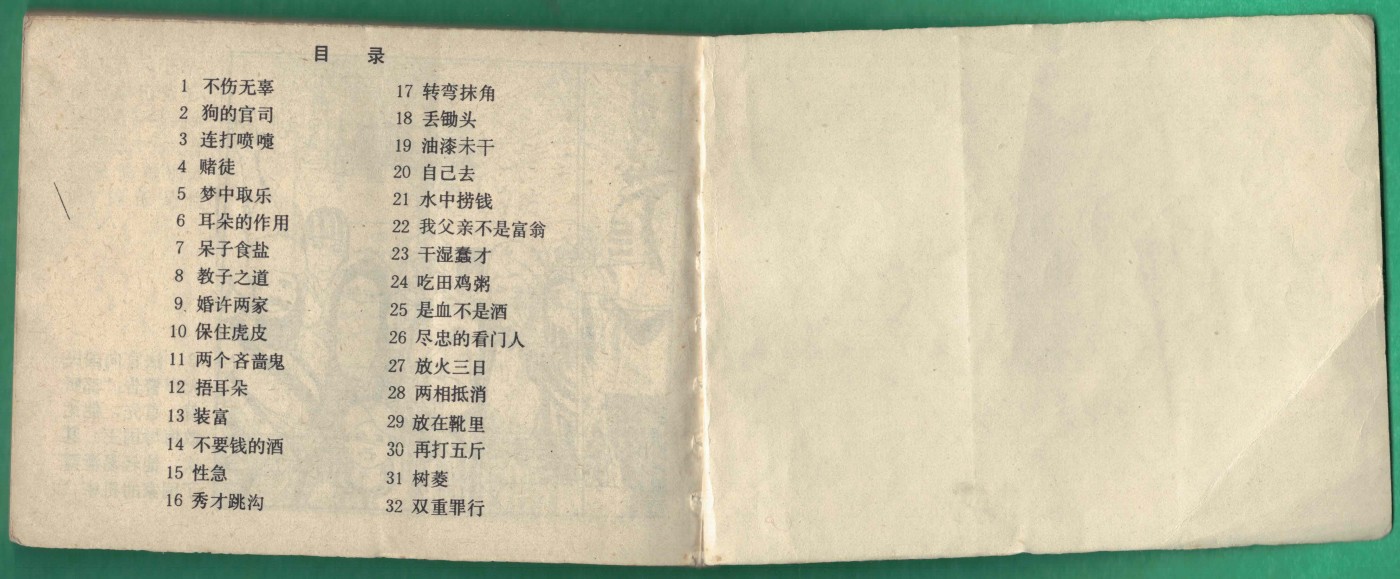 目 录
1 不伤无辜
2 狗的官司
3 连打喷嚏
4 赌徒
5 梦中取乐
6 耳朵的作用
7 呆子食盐
8 教子之道
9 婚许两家
10 保住虎皮
11 两个吝啬鬼
12 捂耳朵
13 装富
14 不要钱的酒
15 性急
16 秀才跳沟
17 转弯抹角
18 丢锄头
19 油漆未干
20 自己去
21 水中捞钱
22 我父亲不是富翁
23 干湿蠢才
24 吃田鸡粥
25 是血不是酒
26 尽忠的看门人
27 放火三日
28 两相抵消
29 放在靴里
30 再打五斤
31 树菱
32 双重罪行